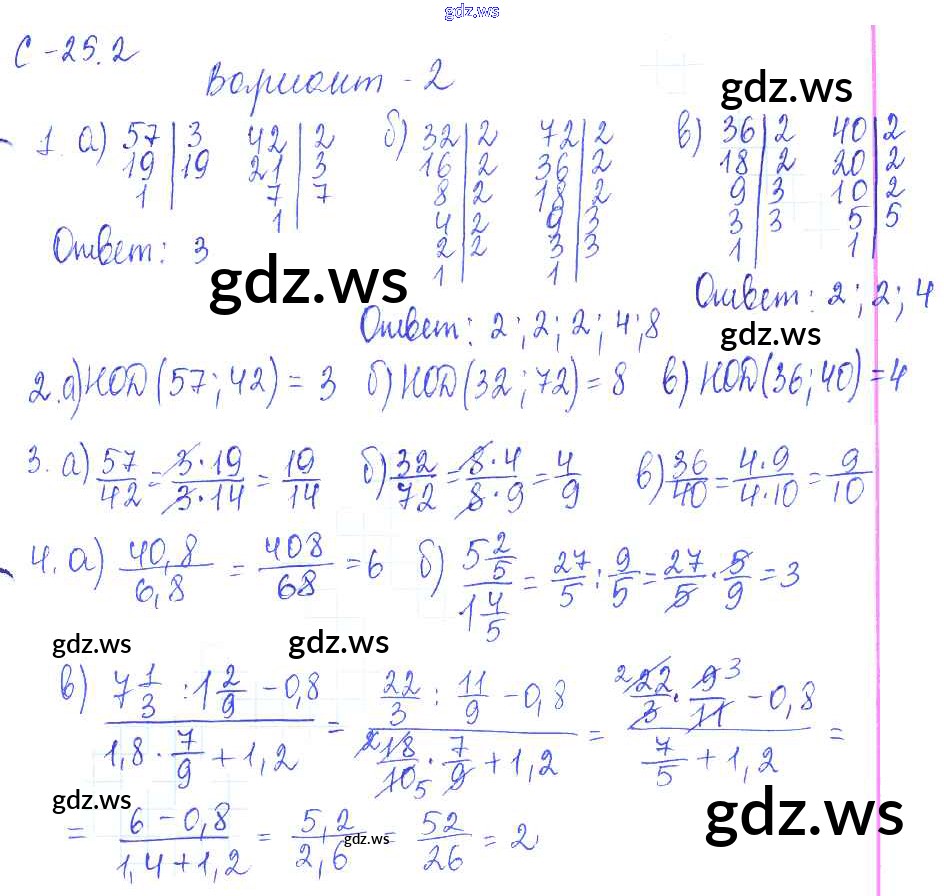 gdz.ws
С-25.2
Вариант - 2
gdz.ws
1. а) 57 | 3   42 | 2   б) 32 | 2   72 | 2   в) 36 | 2   40 | 2
19 | 19   21 | 3   16 | 2   36 | 2   18 | 2   20 | 2
1 |   7 | 7   8 | 2   18 | 2   9 | 3   10 | 2
1 |   4 | 2   9 | 3   3 | 3   5 | 5
Ответ: 3   2 | 2   3 | 3   1 |   1 |
1 |   1 |
gdz.ws
Ответ: 2; 2; 4
Ответ: 2; 2; 2; 4; 8
gdz.ws
2. а) НОД (57; 42) = 3   б) НОД (32; 72) = 8   в) НОД (36; 40) = 4
3. а) 57/42 = 3·19/3·14 = 19/14   б) 32/72 = 8·4/8·9 = 4/9   в) 36/40 = 4·9/4·10 = 9/10
4. а) 40,8/6,8 = 408/68 = 6   б) 5 2/5 / 1 4/5 = 27/5 : 9/5 = 27/5 · 5/9 = 3
gdz.ws
gdz.ws
в) (7 1/3 : 1 2/9 - 0,8)/(1,8 · 7/9 + 1,2) = (22/3 : 11/9 - 0,8)/(2 18/10 5 · 7/9 + 1,2) = (2 22/3 · 9 3/11 - 0,8)/(7/5 + 1,2) =
gdz.ws
gdz.ws
= (6 - 0,8)/(1,4 + 1,2) = 5,2/2,6 = 52/26 = 2
gdz.ws